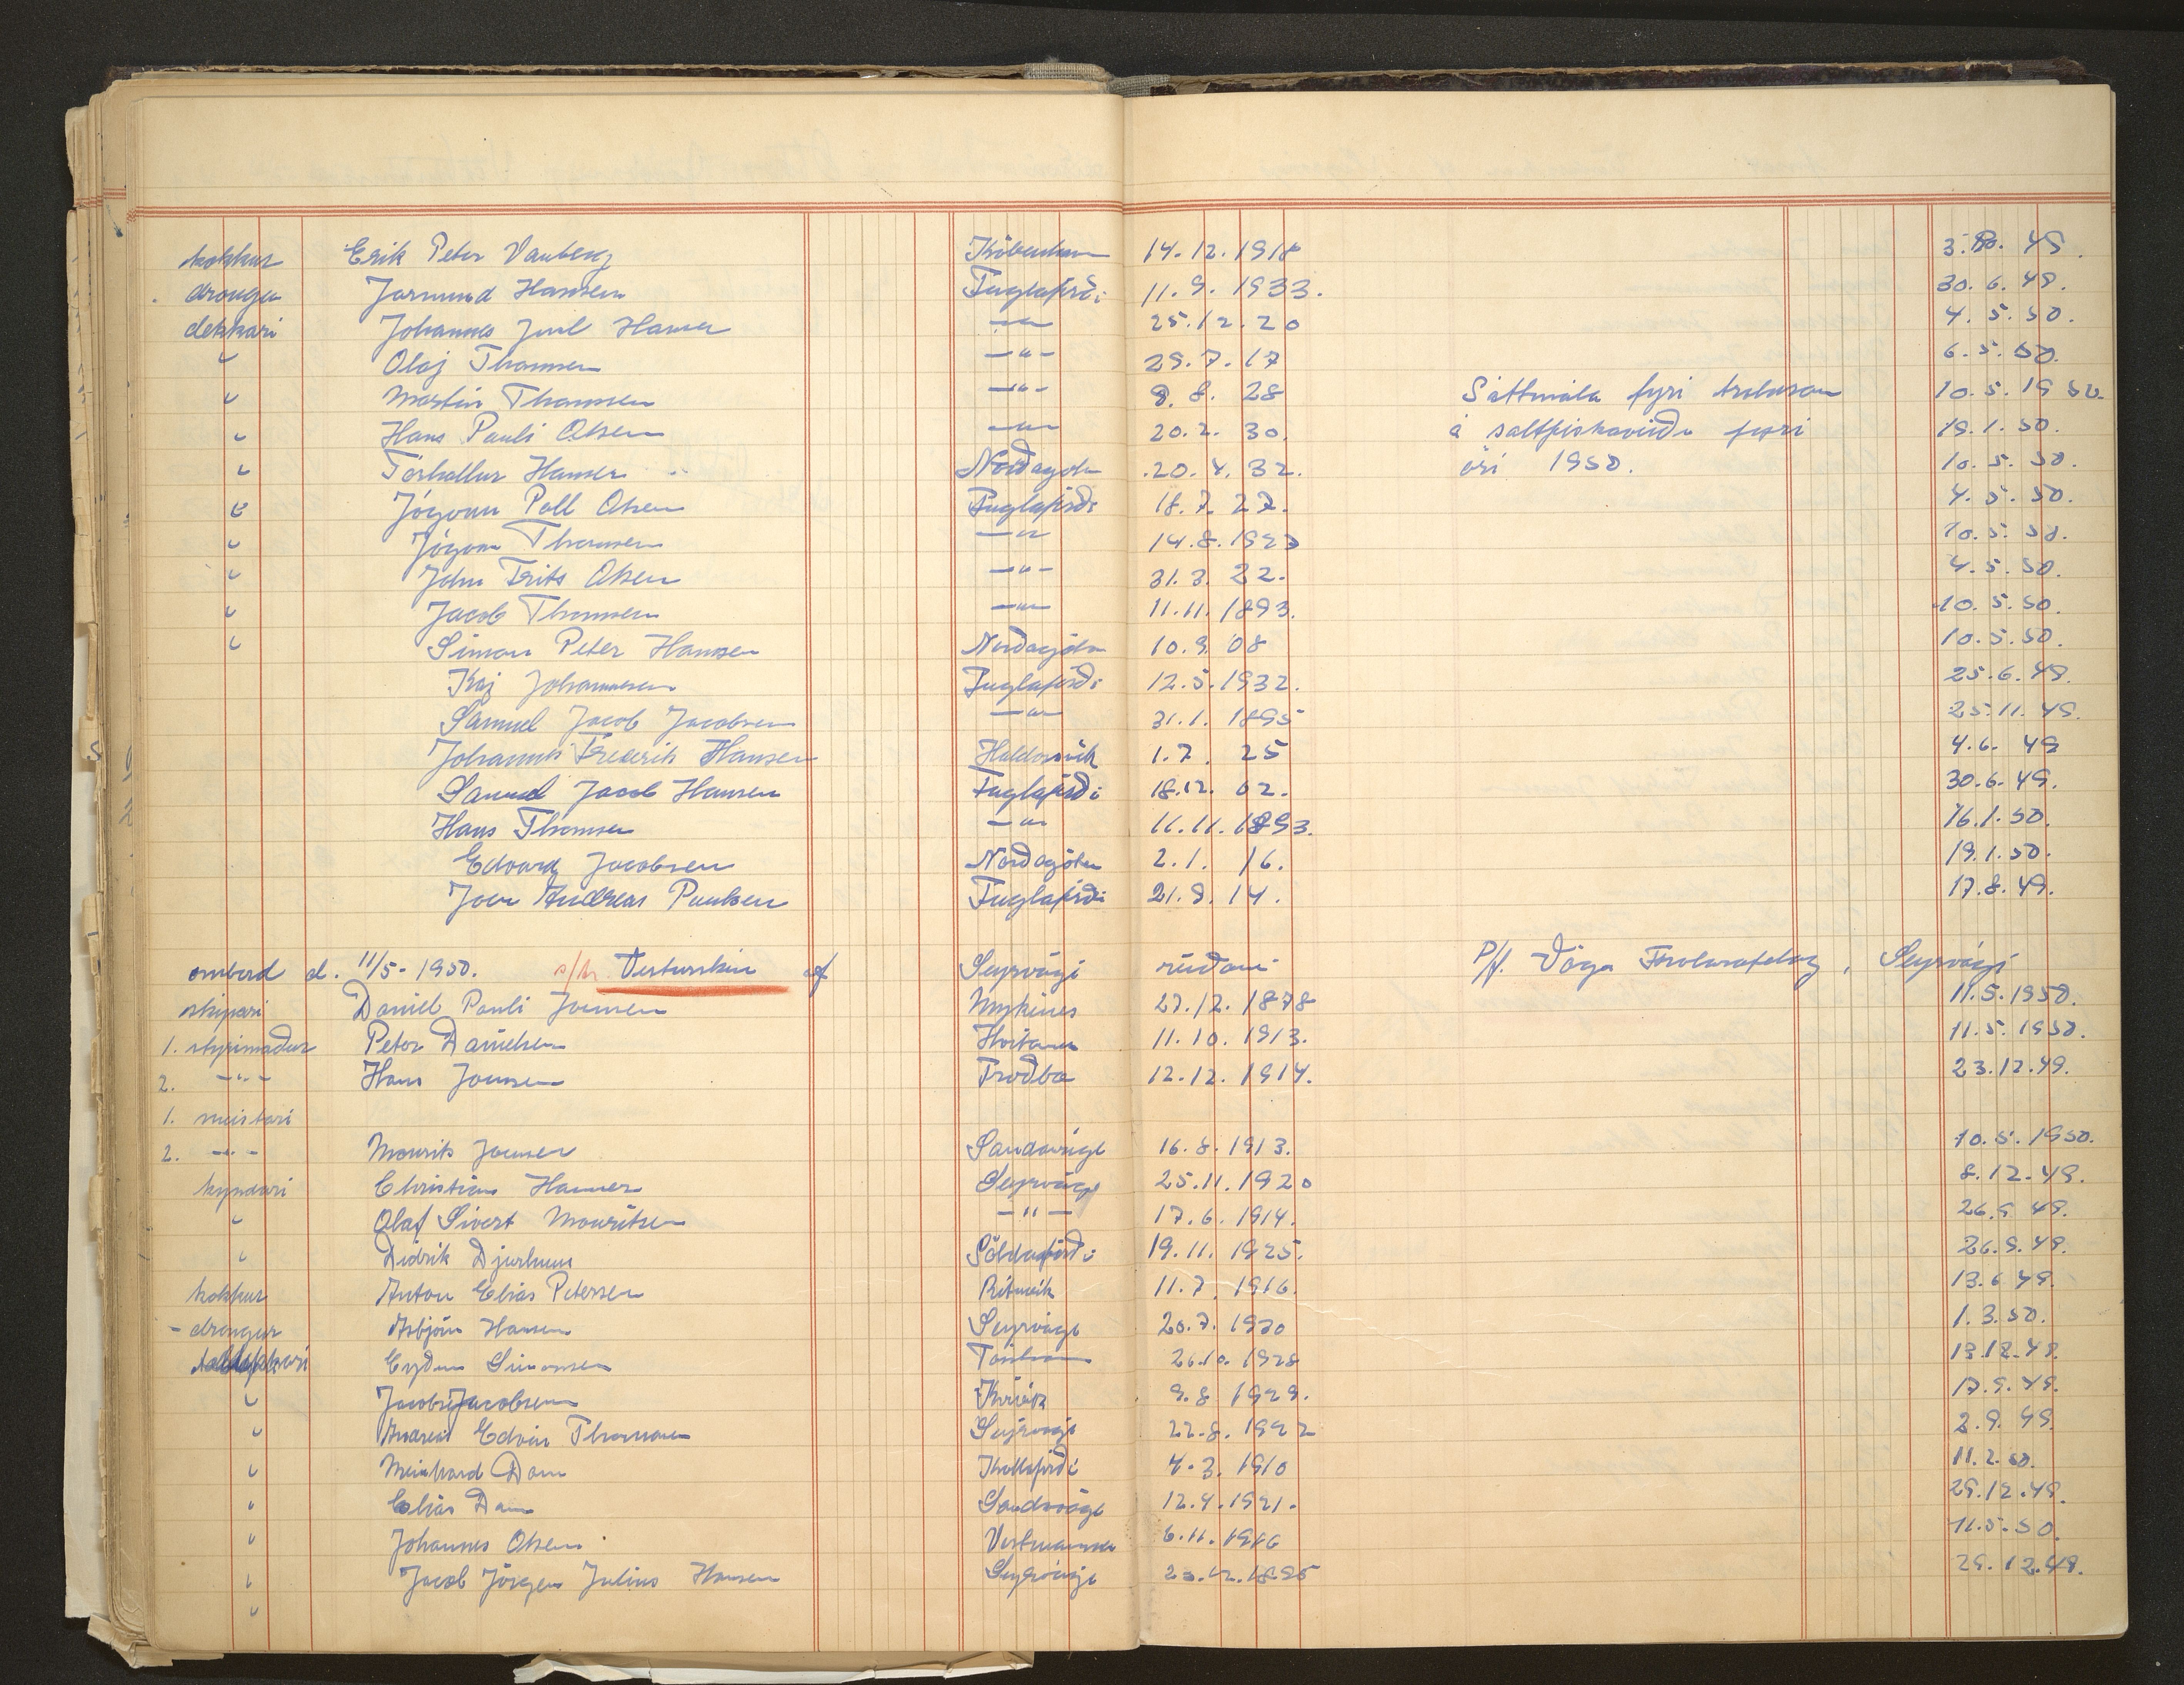 kokkur Erik Peter Vanberg Köbenhavn 14.12.1918 3. 10. 49.
drongur Jarmund Hansen Fuglafirði 11.9.1933. 30.6.49.
dekkari Johannes Juul Hansen -"- 25.12.20 4.5.50.
" Olaj Thomsen -"- 29.7.17 6.5.50.
" Martin Thomsen -"- 9.8.28 Sáttmála fyri trolaran 10.5.1950.
" Hans Pauli Olsen -"- 20.2.30. á saltfiskaveiðu fyri 19.1.50.
" Tórhallur Hansen Norðagötu 20.4.32. ári 1950. 10.5.50.
" Jógvan Poll Olsen Fuglafirði 18.7.27. 4.5.50.
" Jógvan Thomsen -"- 14.8.1923 10.5.50.
" John Frits Olsen -"- 31.3.22. 4.5.50.
" Jacob Thomsen -"- 11.11.1893. 10.5.50.
" Simon Peter Hansen Norðagötu 10.9.08 10.5.50.
Kaj Johannesen Fuglafirði 12.5.1932. 25.6.49.
Samuel Jacob Jacobsen -"- 31.1.1895 25.11.49.
Johannes Frederik Hansen Haldorsvík 1.7.25 4.6.49
Samuel Jacob Hansen Fuglafirði 18.12.02. 30.6.49.
Hans Thomsen -"- 11.11.1893. 16.1.50.
Edvard Jacobsen Norðagötu 2.1.16. 19.1.50.
Joen Andreas Poulsen Fuglafirði 21.9.14. 17.8.49.
ombord d. 11/5-1950. s/tr. Vesturskin af Seyrvági P/f. Vága Trolarafelag, Seyrvági
skipari Daniel Pauli Joensen Mykines 27.12.1878 11.5.1950.
1. stýrimaður Peter Danielsen Hvítanes 11.10.1913. 11.5.1950.
2. -"- Hans Joensen Froðba 12.12.1914. 23.12.49.
1. meistari
2. -"- Mourits Joensen Sandavági 16.8.1913. 10.5.1950.
kyndari Christian Hansen Seyrvági 25.11.1920 8.12.49.
" Olaf Sivert Mouritsen -"- 17.6.1914. 26.9.49.
" Didrik Djurhuus Söldafirði 19.11.1925. 26.9.49.
kokkur Anton Elias Petersen Rituvík 11.7.1916. 13.6.49.
- drongur Asbjörn Hansen Seyrvági 20.7.1930 1.3.50.
Eyðun Simonsen Tórshavn 26.10.1928 13.12.49.
" Jacob Jacobsen Kvívík 9.8.1929. 17.9.49.
" Andreas Edvin Thomsen Seyrvági 22.8.1922 2.9.49.
" Meinhard Dam Kollafirði 4.3.1910 11.2.50.
" Elias Dam Sandavági 12.4.1921. 29.12.49.
" Johannes Olsen Vestmanna 6.11.1916 11.5.50.
" Jacob Jörgen Julius Hansen Seyrvági 23.12.1895 29.12.49.
"